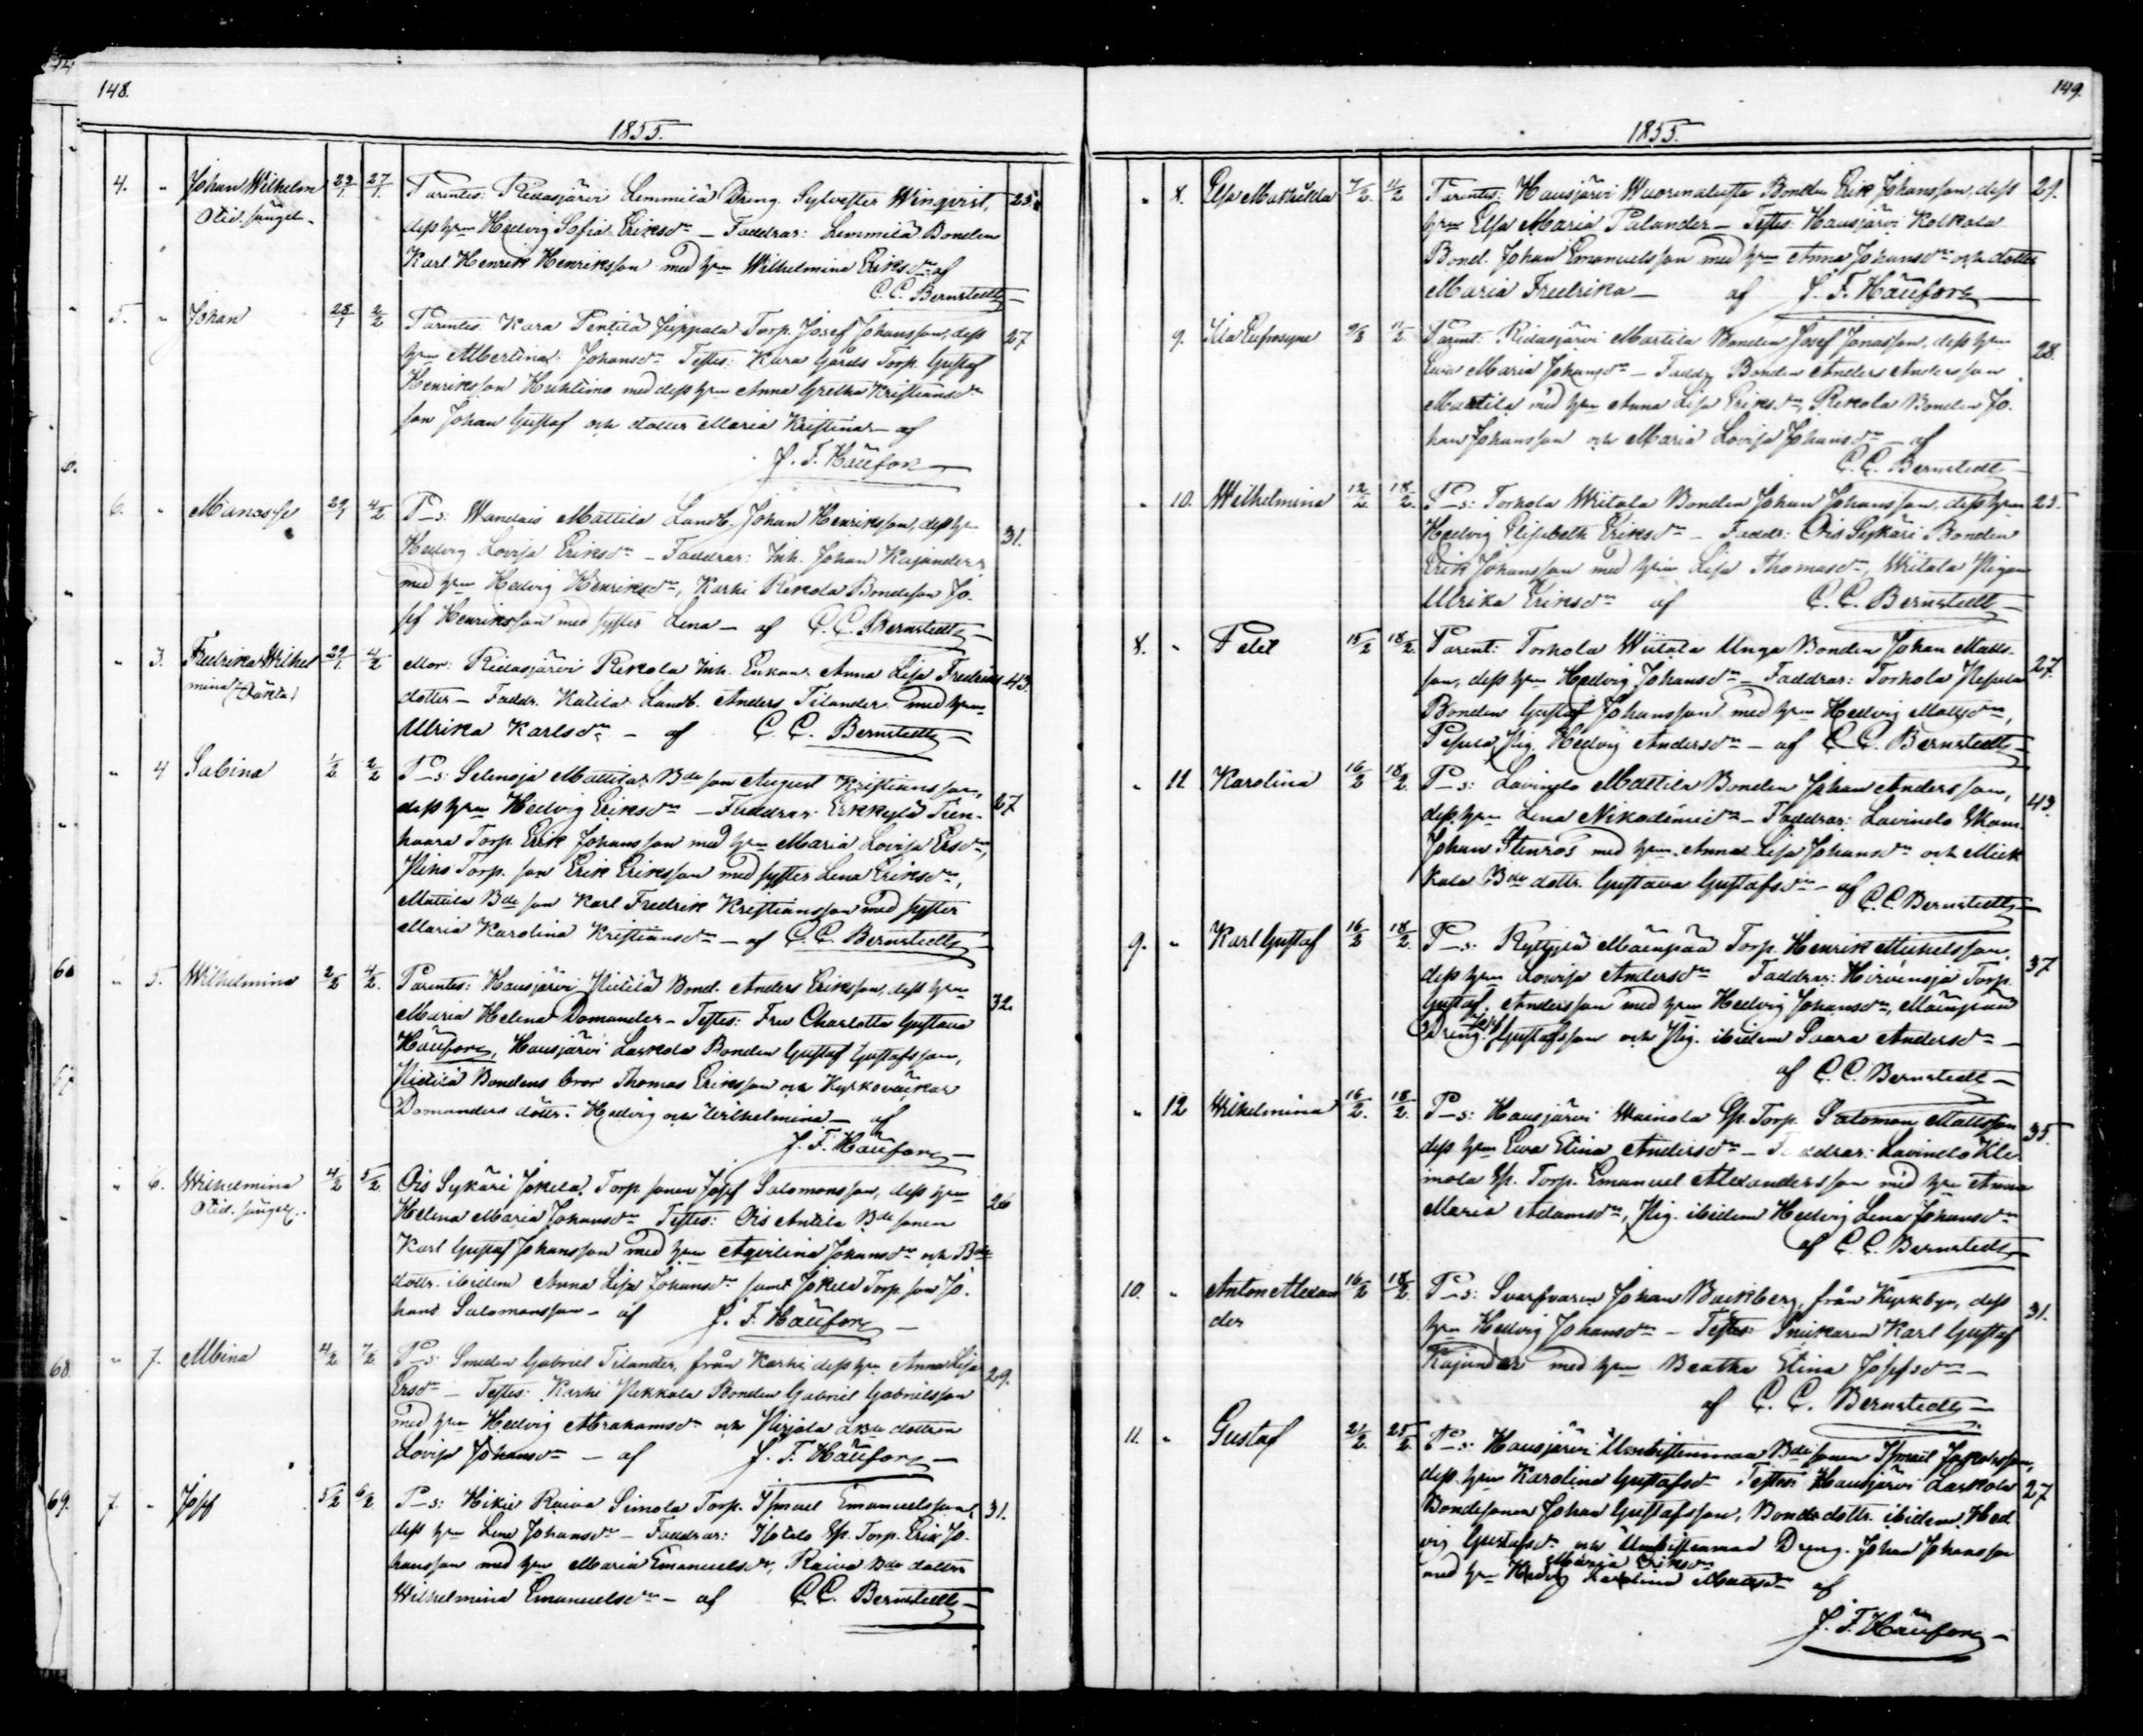 148.
1855.
4. " Johan Wilhelm 23/1 27/1 Parentes: Ridasjärvi Lemmilä Dreng. Sylvester Winqvist, 25
Otid. fängels. dess hru Hedvig Sofia Eriksdr — Faddrar: Lemmilä Bonden
Karl Henrik Henriksson med hru Wilhelmina Eriksdr af
C. C. Bernstedt
5. " Johan 28/1 2/2 Parentes: Kara Pentilä Juppala Torp. Josef Johansson, dess 27
hru Albertina Johansdr Testes: Kara Gårds Torp. Gustaf
Henriksson Huhtimo med dess hru Anna Gretha Kristiansdr
son Johan Gustaf och dotter Maria Kristina — af
J. F. Häufor
6. " Manasse 29/1 4/2 P—s: Wandais Mattila Landb. Johan Henriksson, dess hru 31.
Hedvig Lovisa Eriksdr — Faddrar: Inh. Johan Kajander
med hru Hedvig Henriksdr, Karhi Rekola Bondeson Jo-
sef Henriksson med syster Lena — af C. C. Bernstedt
" 3. Fredrika Wilhel 29/1 4/2 Mor: Ridasjärvi Rekola Inh. Enkan Anna Lisa Fredriks 43.
mina (Oäkta) dotter — Faddr. Katila Landb. Anders Tilander med hru
Ulrika Karlsdr — af C. C. Bernstedt
" 4 Sabina 1/2 2/2 P—s: Selensjä Mattilas Bde son August Kristiansson, 27
dess hru Hedvig Eriksdr — Faddrar: Erkkylä Tien-
haara Torp. Erik Johansson med hru Maria Lovisa Ersdr,
Torp. son Erik Eriksson med syster Lena Eriksdr,
Mattila Bde son Karl Fredrik Kristiansson med syster
Maria Karolina Kristiansdr — af C. C. Bernstedt
" 5. Wilhelmina 2/2 4/2. Parentes: Hausjärvi Bond. Anders Eriksson, dess hru 32.
Maria Helena Domander — Testes: Fru Charlotta Gustava
Häufors, Hausjärvi Laskola Bonden Gustaf Gustafsson,
Bondens bror Thomas Eriksson och Kyrkoväktar
Domanders döttr. Hedvig och Wilhelmina — af
J. F. Häufors
" 6. Wilhelmina 4/2 5/2 Ois Sykäri Jokela Torp. sonen Josef Salomonsson, dess hru 26
Otid. fängels. Helena Maria Johansdr Testes: Ois Antila Bde sonen
Karl Gustaf Johansson med hru Agvilina Johansdr och Bde
dottr. ibidem Anna Lisa Johansdr samt Jokela Torp. son Jo-
hans Salomonsson — af J. F. Häufors
68. " 7. Albina 4/2 7/2 P—s: Smeden Gabriel Tilander, från Karhi, dess hru Anna Lisa 29.
Ersdr — Testes: Karhi Pekkala Bonden Gabriel Gabrielsson
med hru Hedvig Abrahamsdr och Pirjola dottren
Lovisa Johansdr — af J. F. Häufors
69. 7 " Josef 5/2 6/2 P—s: Hikiä Raiva Simola Torp. Ismael Emanuelsson, 31.
dess hru Lena Johansdr — Faddrar: Torp. Erik Jo-
hansson med hru Maria Emanuelsdr, Raiva Bde dottr.
Wilhelmina Emanuelsdr — af C. C. Bernstedt
149.
1855.
" 8. Elsa Mathilda 7/2. 11/2 Parentes: Hausjärvi Bonden Erik Johansson, dess 29.
hru Elsa Maria Palander — Testes: Hausjärvi Kolkala
Bond. Johan Emanuelsson med hru Anna Johansdr och dotter
Maria Fredrika — af J. F. Häufors
9. Ida Eufrosyne 9/2 11/2 Parent: Ridasjärvi Martila Bonden Josef Jonasson, dess hru 28.
Ewa Maria Johansdr — Faddr. Bonden Anders Andersson
Martila med hru Anna Lisa Eriksdr, Rekola Bonden Jo-
han Johansson och Maria Lovisa Johansdr — af
C. C. Bernstedt
" 10. Wilhelmina 12/2 18/2. P—s: Torhola Wiitala Bonden Johan Johansson, dess hru 25.
Hedvig Elisabeth Eriksdr — Faddr: Ois Sykäri Bonden
Erik Johansson med hru Lisa Thomasdr, Wiitala Pigan
Ulrika Eriksdr af C. C. Bernstedt
8. " Felix 15/2 18/2. Parent: Torhola Wiitala Unga Bonden Johan Matts- 27.
son, dess hru Hedvig Johansdr — Faddrar: Torhola
Bonden Gustaf Johansson med hru Hedvig Mattsdr,
Pig. Hedvig Andersdr — af C. C. Bernstedt
" 11 Karolina 16/2 18/2. P—s: Lavinto Mattila Bonden Johan Andersson, 43.
dess hru Lena Nikodemidr — Faddrar: Lavinto
Johan Stenros med hru Anna Lisa Johansdr och Mick
kala Bde dottr. Gustava Gustafsdr — af C. C. Bernstedt
9. " Karl Gustaf 16/2 18/2. P—s: Ryttylä Mäenpää Torp. Henrik Michelsson, 37
dess hru Lovisa Andersdr Faddrar: Hirvensjä Torp.
Gustaf Andersson med hru Hedvig Johansdr, Mäenpää
Dreng. Gustafsson och Pig. ibidem Saara Andersdr —
af C. C. Bernstedt
" 12 Wilhelmina 16/2. 18/2. P—s: Hausjärvi Wainola Sp. Torp. Salomon Mattsson 35.
dess hru Ewa Stina Andersdr — Faddrar: Lavinto Kle-
mola Sp. Torp. Emanuel Alexandersson med hru Anna
Maria Adamsdr, Pig. ibidem Hedvig Lena Johansdr
af C. C. Bernstedt
10. " Anton Alexan 16/2 18/2. P—s: Svarfvaren Johan Backberg, från Kyrkbyn, dess 31.
der hru Hedvig Johansdr — Testes: Snickaren Karl Gustaf
Kajander med hru Beatha Stina Josefsdr —
af C. C. Bernstedt
11. " Gustaf 21/2. 25/2. P—s: Hausjärvi Bde sonen Ismael
dess hru Karolina Gustafsdr Testes: Hausjärvi Laskola 27
Bondesonen Johan Gustafsson, Bonde dottr. ibidem Hed
vig Gustafsdr och Dreng. Johan Johansson
Maria Eriksdr
med hru af
J. F. Häufors